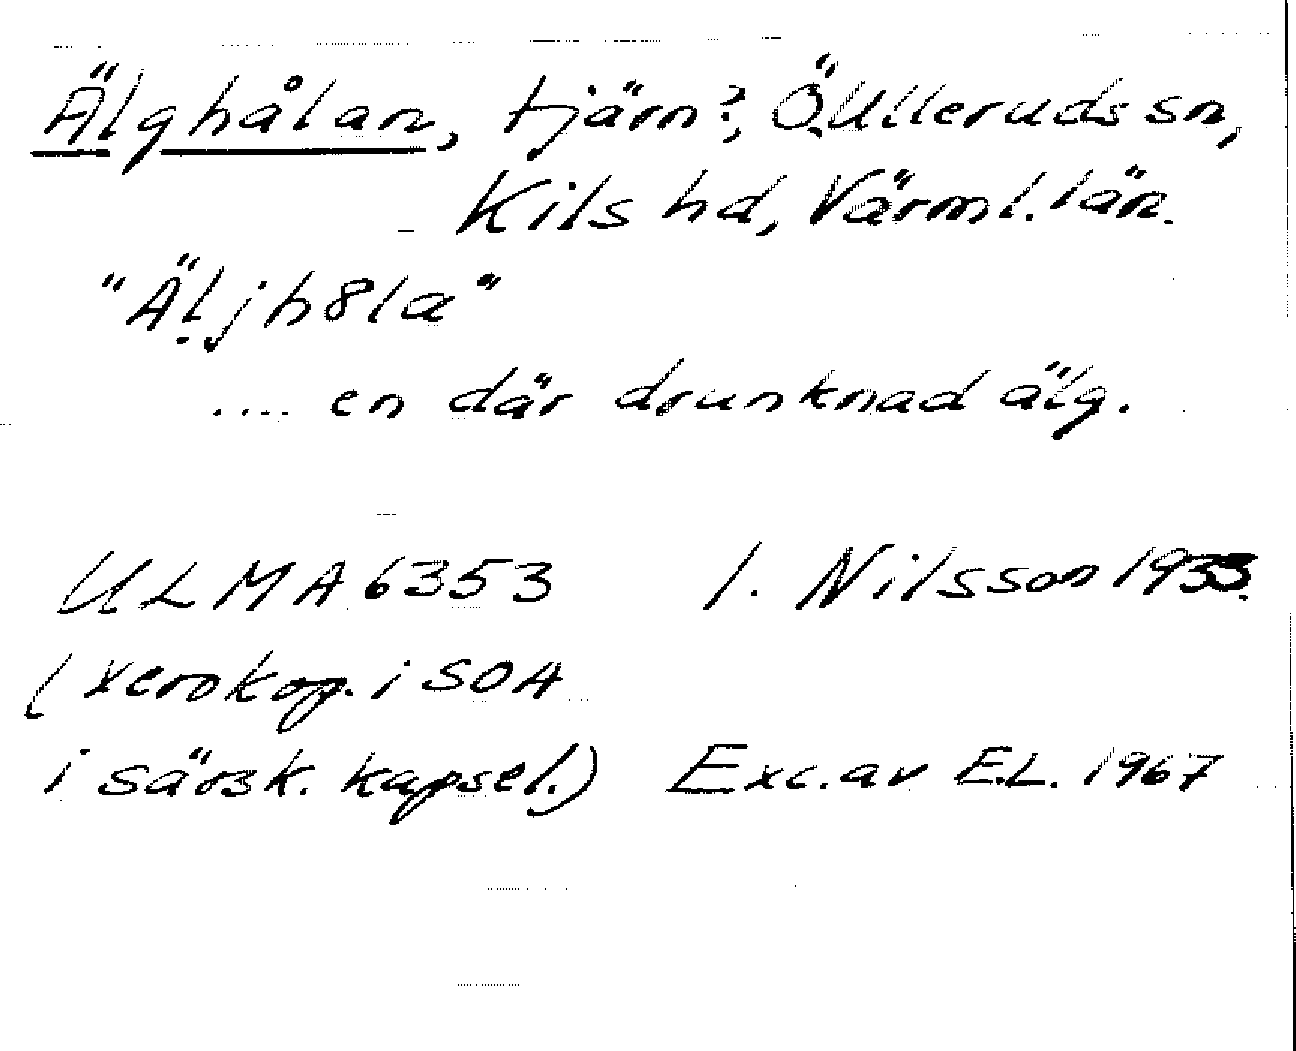 Älghålan, tjärn?, Ö.Ulleruds sn,
Kils hd, Värml. län.
"Äḷjh8la"
.... en där drunknad älg.
ULMA 6353 I. Nilsson 1933.
(xerokop. i SOA
i särsk. kapsel.) Exc. av E.L. 1967